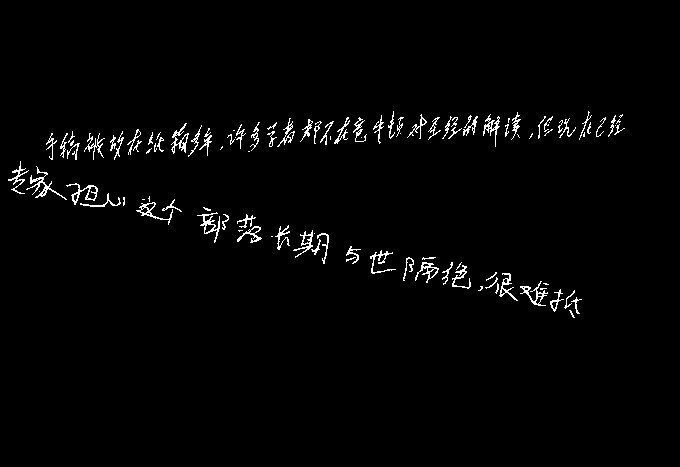 手稿被放在纸箱多年,许多学者都不在意牛顿对圣经的解读,但现在已经
专家担心这个部落长期与世隔绝,很难抵